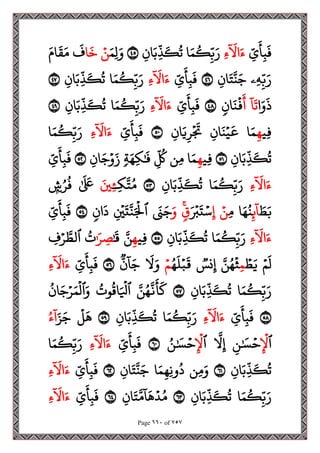 فَبِأَىِّ ءَالَآءِ رَبِّكُمَا تُكَذِّبَانِ ٤٥ وَلِمَنْ خَافَ مَقَامَ
رَبِّهِۦ جَنَّتَانِ ٤٦ فَبِأَىِّ ءَالَآءِ رَبِّكُمَا تُكَذِّبَانِ ٤٧
ذَوَاتَآ أَفْنَانٍ ٤٨ فَبِأَىِّ ءَالَآءِ رَبِّكُمَا تُكَذِّبَانِ ٤٩
فِيهِمَا عَيْنَانِ تَجْرِيَانِ ٥٠ فَبِأَىِّ ءَالَآءِ رَبِّكُمَا
تُكَذِّبَانِ ٥١ فِيهِمَا مِن كُلِّ فَٰكِهَةٍ زَوْجَانِ ٥٢ فَبِأَىِّ
ءَالَآءِ رَبِّكُمَا تُكَذِّبَانِ ٥٣ مُتَّكِـِٔينَ عَلَىٰ فُرُشٍۭ
بَطَآئِنُهَا مِنْ إِسْتَبْرَقٍ ۚ وَجَنَى ٱلْجَنَّتَيْنِ دَانٍ ٥٤ فَبِأَىِّ
ءَالَآءِ رَبِّكُمَا تُكَذِّبَانِ ٥٥ فِيهِنَّ قَٰصِرَٰتُ ٱلطَّرْفِ
لَمْ يَطْمِثْهُنَّ إِنسٌ قَبْلَهُمْ وَلَا جَآنٌّ ٥٦ فَبِأَىِّ ءَالَآءِ
رَبِّكُمَا تُكَذِّبَانِ ٥٧ كَأَنَّهُنَّ ٱلْيَاقُوتُ وَٱلْمَرْجَانُ
٥٨ فَبِأَىِّ ءَالَآءِ رَبِّكُمَا تُكَذِّبَانِ ٥٩ هَلْ جَزَآءُ
ٱلْإِحْسَٰنِ إِلَّا ٱلْإِحْسَٰنُ ٦٠ فَبِأَىِّ ءَالَآءِ رَبِّكُمَا
تُكَذِّبَانِ ٦١ وَمِن دُونِهِمَا جَنَّتَانِ ٦٢ فَبِأَىِّ ءَالَآءِ
رَبِّكُمَا تُكَذِّبَانِ ٦٣ مُدْهَآمَّتَانِ ٦٤ فَبِأَىِّ ءَالَآءِ
Page ٦٦٠ of ٧٥٧